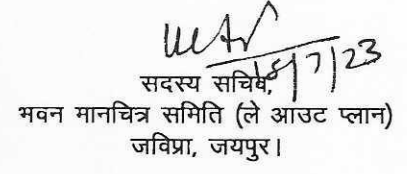 18/7/23
सदस्य सचिव,
भवन मानचित्र समिति (ले आउट प्लान)
जविप्रा, जयपुर।